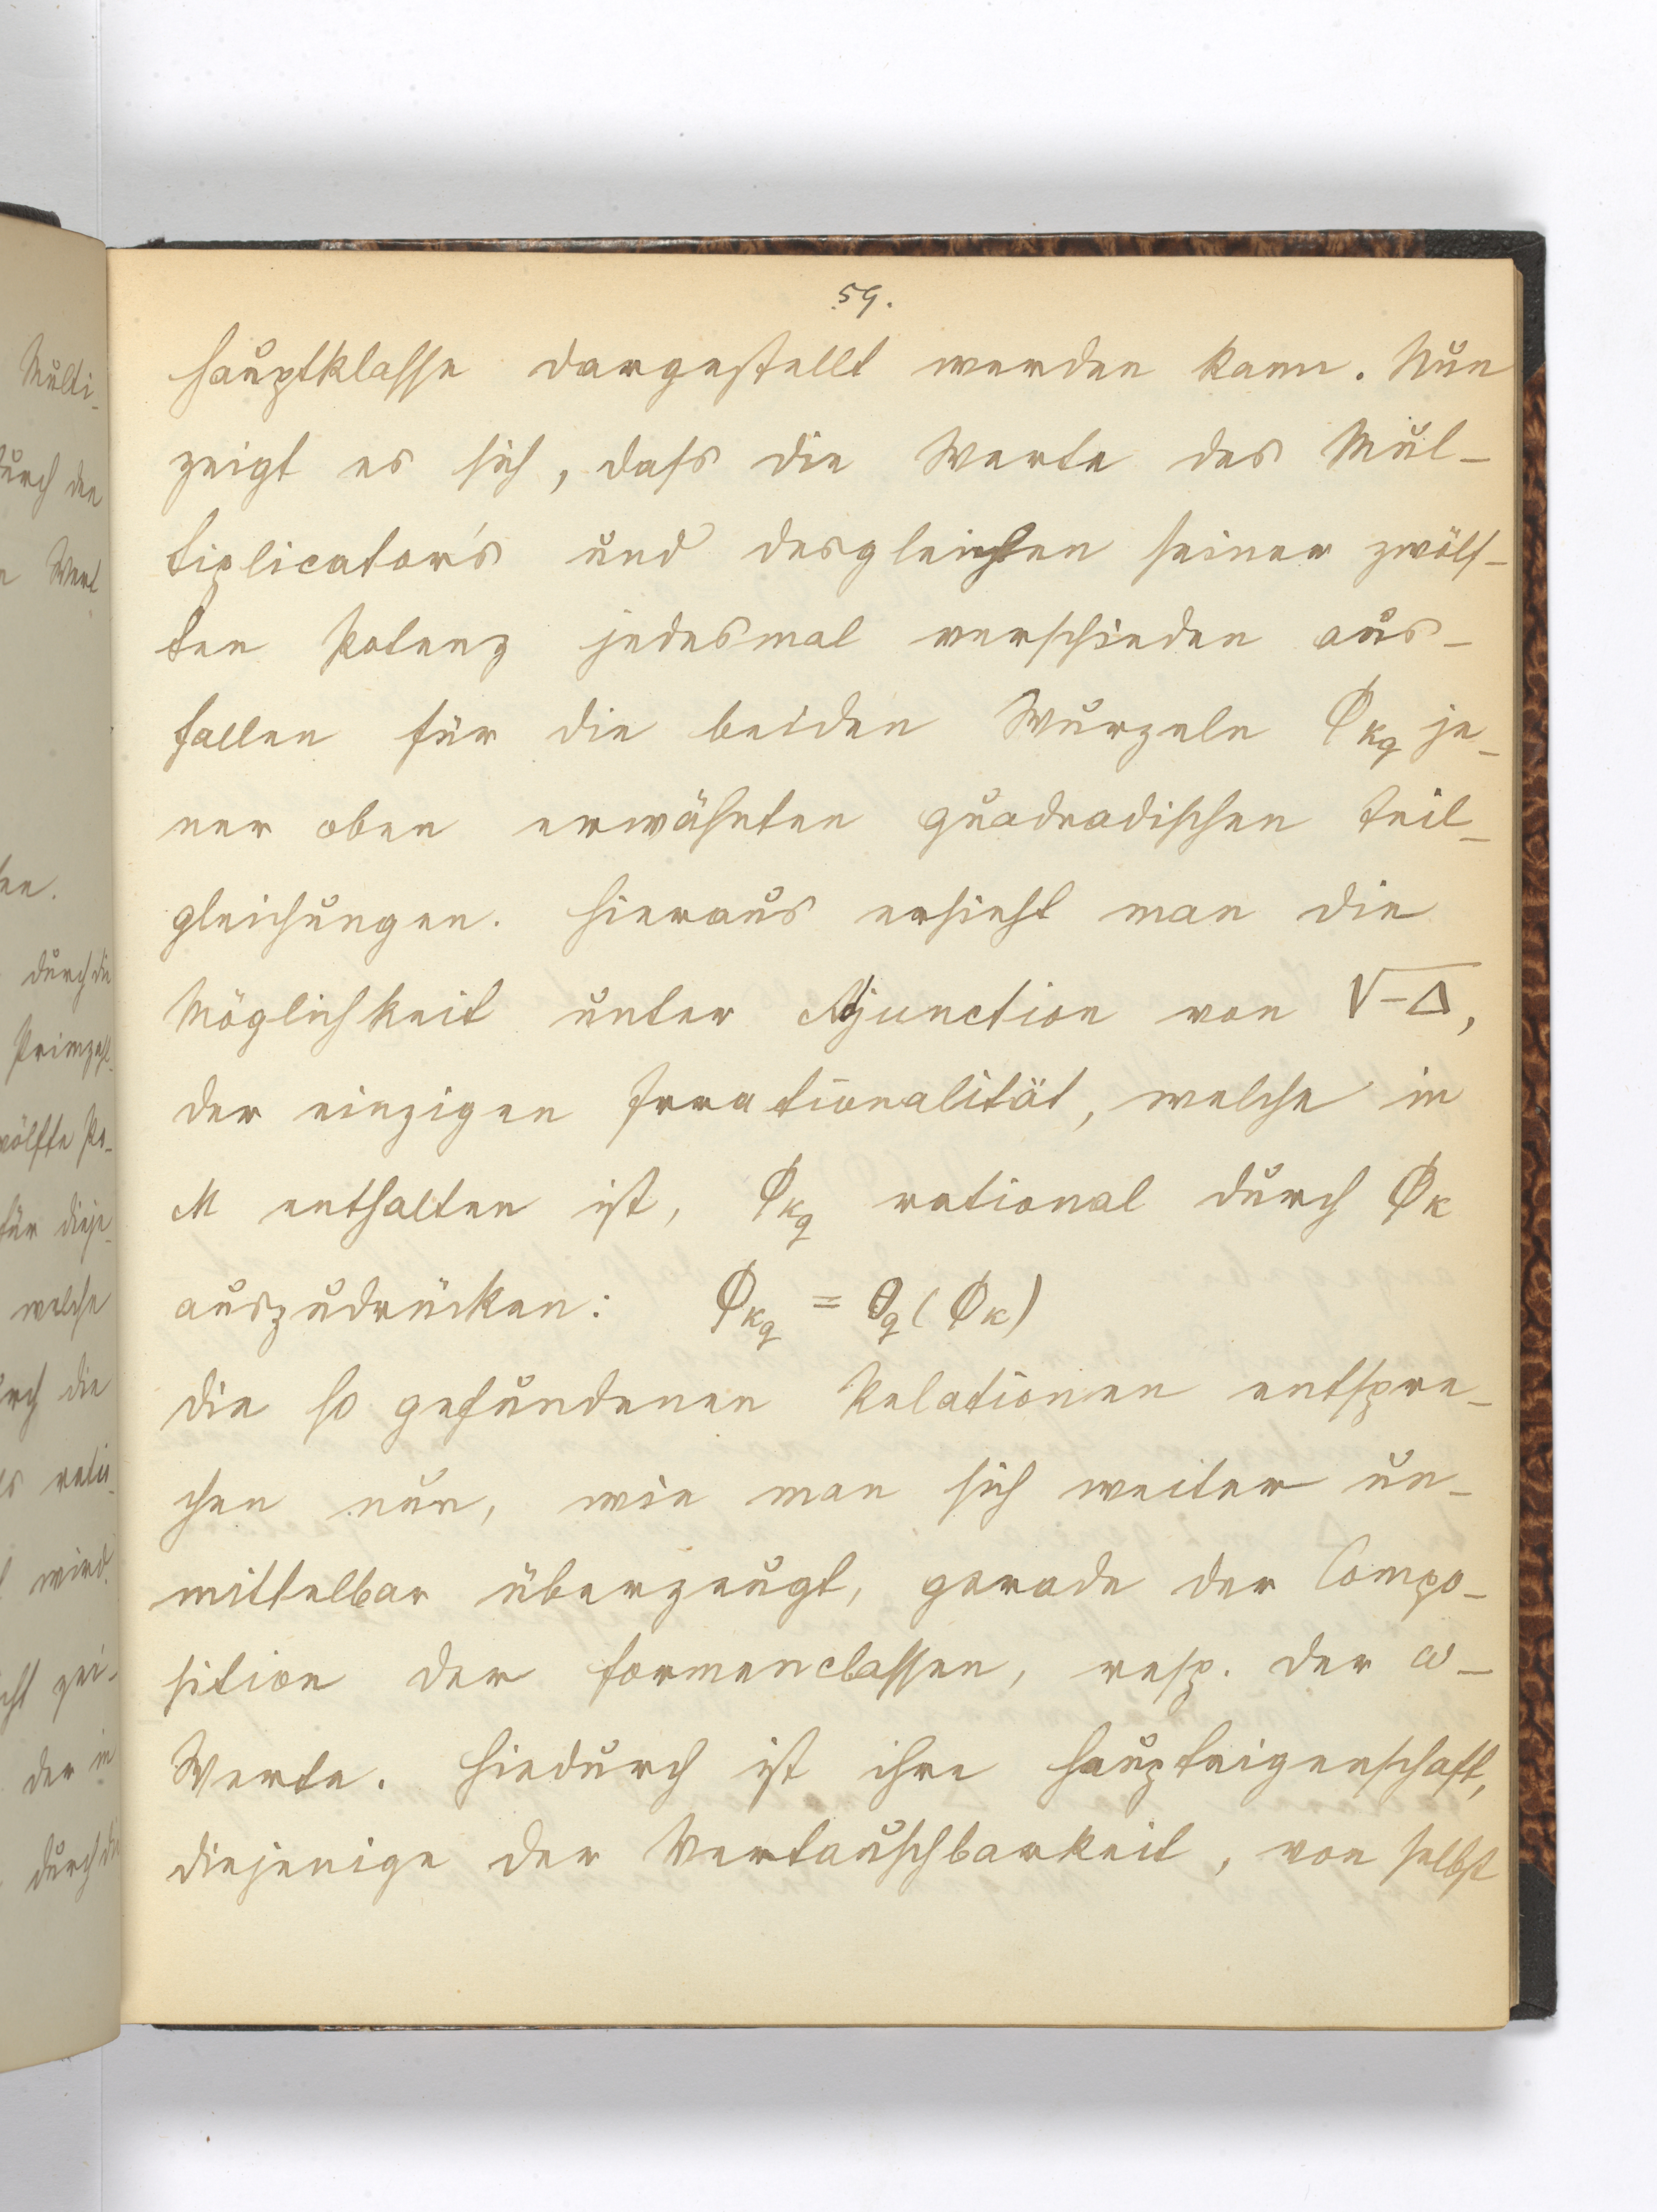 59.
Hauptklasse dargestellt werden kann. Nun
zeigt es sich, dafs die Werte des Mul-
tiplicator's und desgleichen seiner zwölf-
ten Potenz jedesmal verschieden aus-
fallen für die beiden Wurzeln ϕ_{k_q} je-
ner oben erwähnten quadradischen Teil-
gleichungen. Hieraus ersieht man die
Möglichkeit unter Adjunction von √-Δ,
der einzigen Irrationalität, welche in
M enthalten ist, ϕ_{k_q} rational durch ϕ_k
auszudrücken: ϕ_{k_q} = θ_q(ϕ_k)
Die so gefundenen Relationen entspre-
chen nun, wie man sich weiter un-
mittelbar überzeugt, gerade der Compo-
sition der Formenclassen, resp. der ω-
Werte. Hiedurch ist ihre Haupteigenschaft,
diejenige der Vertauschbarkeit, von selbst
Multi-
durch den
Wert
durch die
Primzahl-
zwölfte Po-
für dieje-
welche
durch die
wird.
der in
durch die